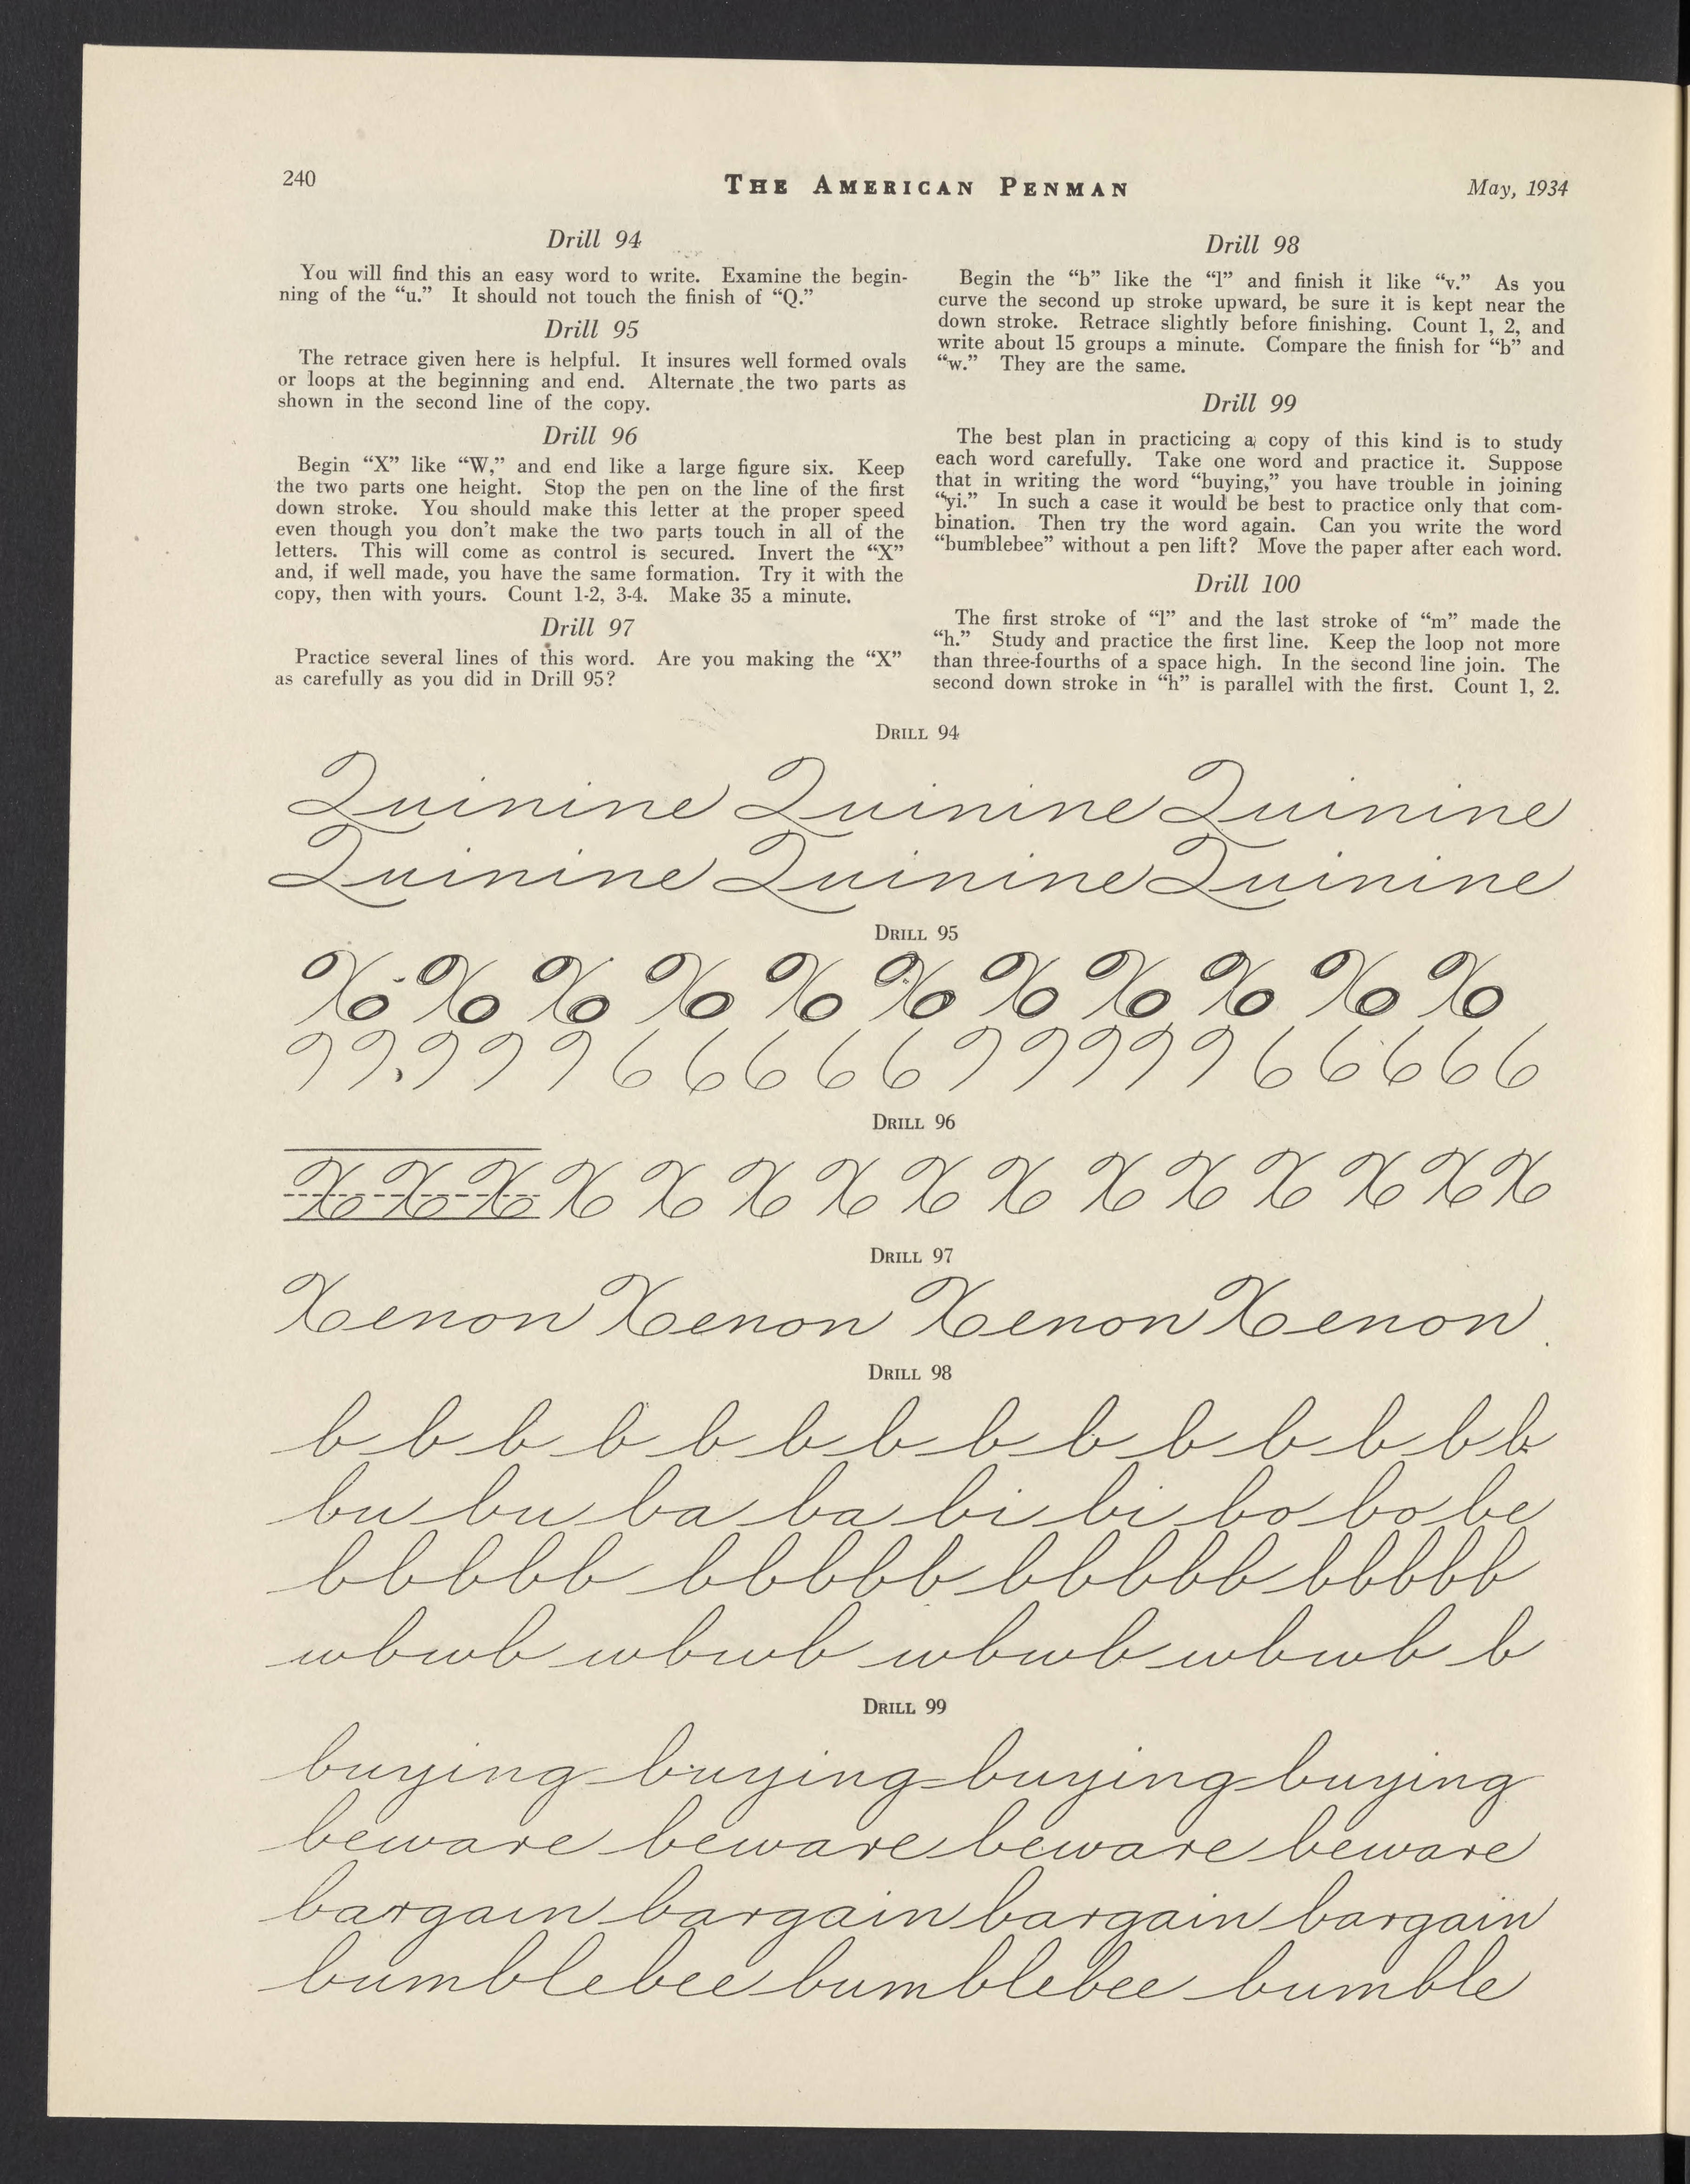 240
THE AMERICAN PENMAN
May, 1934
Drill 94
You will find this an easy word to write. Examine the begin-
ning of the “u.” It should not touch the finish of “Q.”
Drill 95
The retrace given here is helpful. It insures well formed ovals
or loops at the beginning and end. Alternate the two parts as
shown in the second line of the copy.
Drill 96
Begin “X” like “W,” and end like a large figure six. Keep
the two parts one height. Stop the pen on the line of the first
down stroke. You should make this letter at the proper speed
even though you don’t make the two parts touch in all of the
letters. This will come as control is secured. Invert the “X”
and, if well made, you have the same formation. Try it with the
copy, then with yours. Count 1-2, 3-4. Make 35 a minute.
Drill 97
Practice several lines of this word. Are you making the “X”
as carefully as you did in Drill 95?
Drill 98
Begin the “b” like the “l” and finish it like “v.” As you
curve the second up stroke upward, be sure it is kept near the
down stroke. Retrace slightly before finishing. Count 1, 2, and
write about 15 groups a minute. Compare the finish for “b” and
“w.” They are the same.
Drill 99
The best plan in practicing a copy of this kind is to study
each word carefully. Take one word and practice it. Suppose
that in writing the word “buying,” you have trouble in joining
“yi.” In such a case it would be best to practice only that com-
bination. Then try the word again. Can you write the word
“bumblebee” without a pen lift? Move the paper after each word.
Drill 100
The first stroke of “l” and the last stroke of “m” made the
“h.” Study and practice the first line. Keep the loop not more
than three-fourths of a space high. In the second line join. The
second down stroke in “h” is parallel with the first. Count 1, 2.
DRILL 94
Quinine Quinine Quinine
Quinine Quinine Quinine
DRILL 95
X X X X X X X X X X X
9 9 9 9 9 6 6 6 6 6 9 9 9 9 9 6 6 6 6 6
DRILL 96
X X X X X X X X X X X X X X X
DRILL 97
Xenon Xenon Xenon Xenon
DRILL 98
b b b b b b b b b b b b b b
bu bu ba ba bi bi bo bo be
bbbbb bbbbb bbbbb bbbbb
wbwb wbwb wbwb wbwb b
DRILL 99
buying buying buying buying
beware beware beware beware
bargain bargain bargain bargain
bumblebee bumblebee bumble